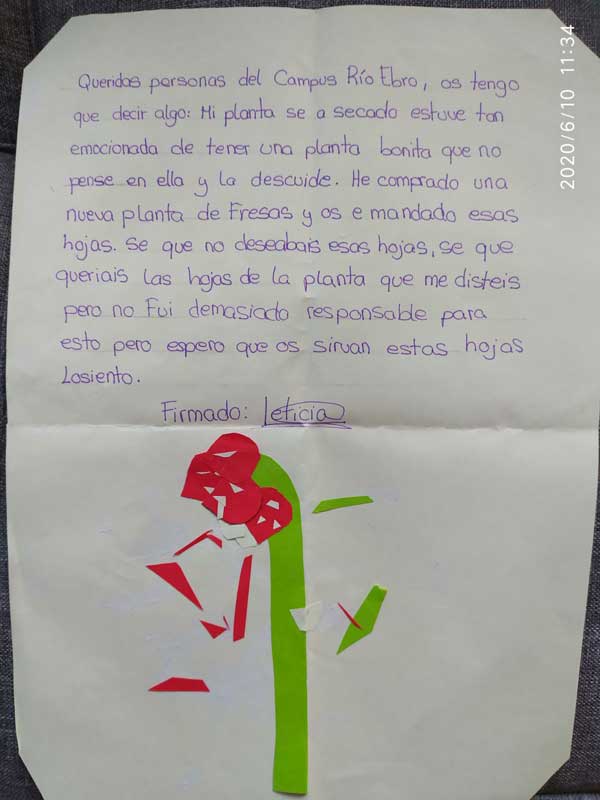 Queridas personas del Campus Río Ebro, os tengo
que decir algo: Mi planta se a secado estuve tan
emocionada de tener una planta bonita que no
pense en ella y la descuide. He comprado una
nueva planta de Fresas y os e mandado esas
hojas. Se que no deseabais esas hojas, se que
queriais las hojas de la planta que me disteis
pero no fui demasiado responsable para
esto pero espero que os sirvan estas hojas
Losiento.
Firmado: Leticia
2020/6/10 11:34